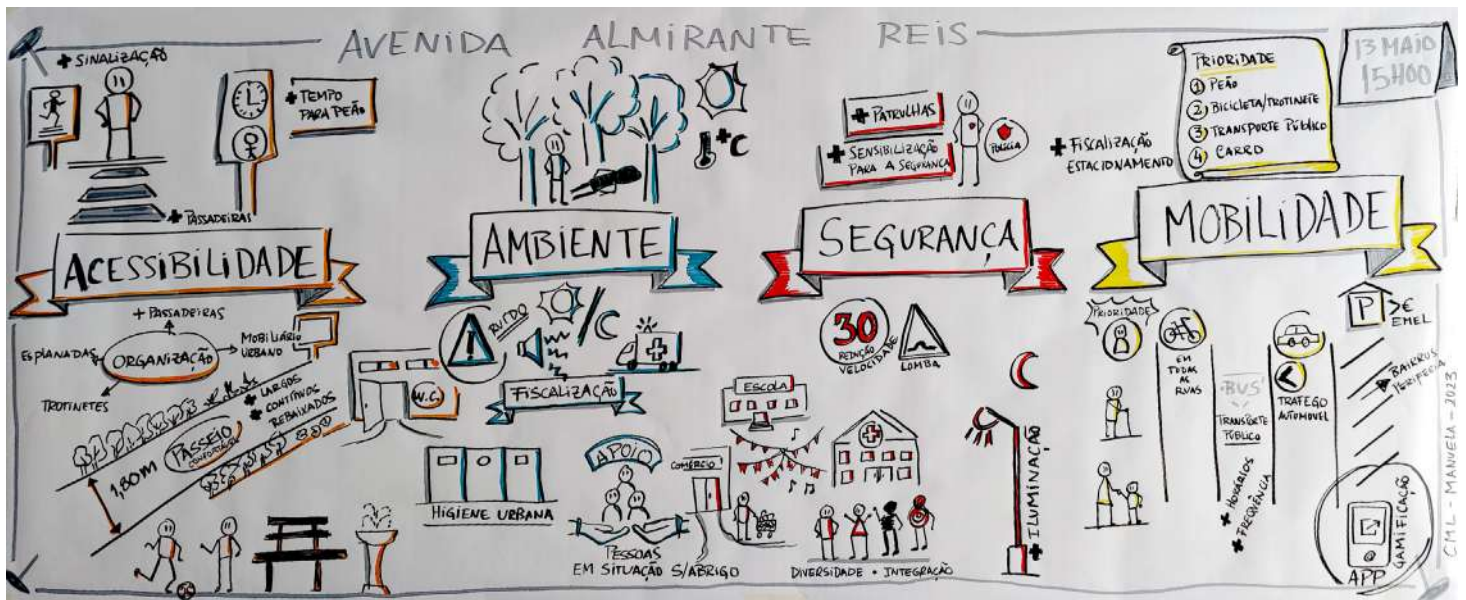 AVENIDA ALMIRANTE REIS
13 MAIO
15H00
+ SINALIZAÇÃO
+ TEMPO
PARA PEÃO
+ PASSADEIRAS
ACESSIBILIDADE
+ PASSADEIRAS
ESPLANADAS
ORGANIZAÇÃO
MOBILIÁRIO
URBANO
TROTINETES
+ LARGOS
+ CONTÍNUOS
+ REBAIXADOS
PASSEIO
CONFORTÁVEL
1,80M
W.C.
+°C
AMBIENTE
RUÍDO
FISCALIZAÇÃO
HIGIENE URBANA
APOIO
PESSOAS
EM SITUAÇÃO S/ABRIGO
+ PATRULHAS
+ SENSIBILIZAÇÃO
PARA A SEGURANÇA
POLÍCIA
SEGURANÇA
30
REDUÇÃO
VELOCIDADE
LOMBA
ESCOLA
COMÉRCIO
DIVERSIDADE + INTEGRAÇÃO
+ ILUMINAÇÃO
PRIORIDADE
1 PEÃO
2 BICICLETA/TROTINETE
3 TRANSPORTE PÚBLICO
4 CARRO
+ FISCALIZAÇÃO
ESTACIONAMENTO
MOBILIDADE
PRIORIDADE
EM
TODAS
AS
RUAS
BUS
TRANSPORTE
PÚBLICO
+ HORÁRIOS
+ FREQUÊNCIA
<
TRAFEGO
AUTOMOVEL
P
>€
EMEL
BAIRROS
PERIFERIA
GAMIFICAÇÃO
APP
CML - MANUELA - 2023